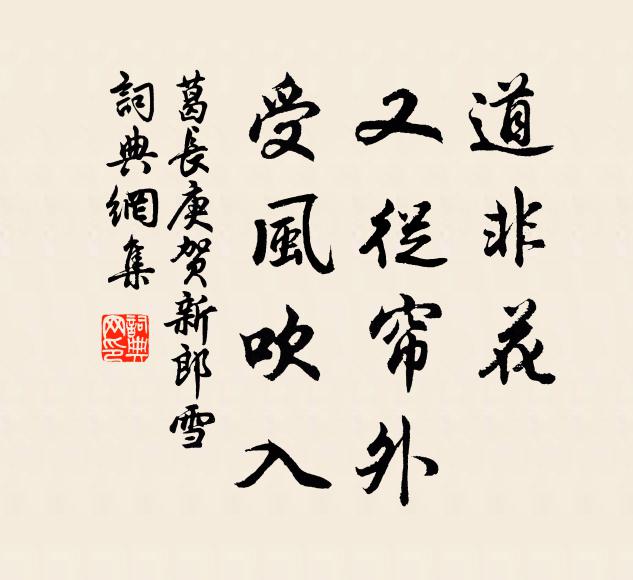 道非花
又從帘外
受風吹入
葛長庚賀新郎雪
詞典網集
詞典网印